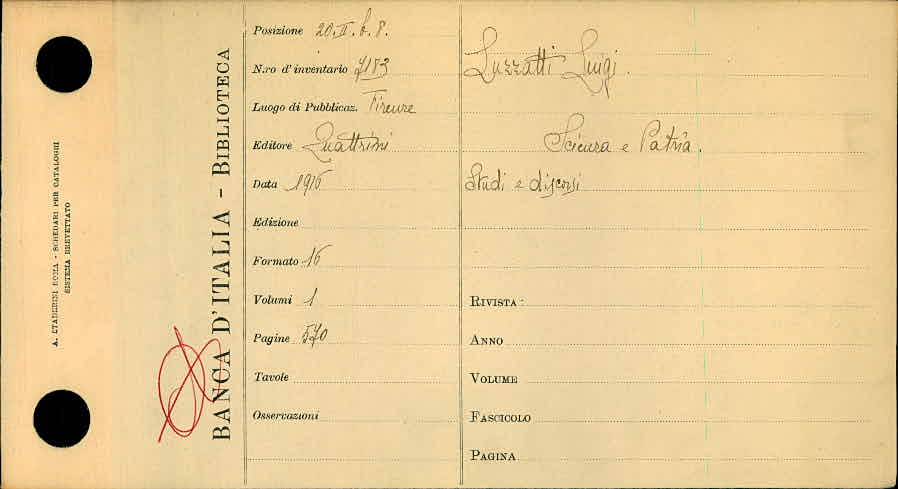 A. STADERINI ROMA - SCHEDARI PER CATALOGHI
SISTEMA BREVETTATO
BANCA D'ITALIA - BIBLIOTECA
Posizione 20.II.b.8.
N.ro d'inventario 7183
Luogo di Pubblicaz. Firenze
Editore Quattrini
Data 1916
Edizione
Formato 16
Volumi 1
Pagine 570
Tavole
Osservazioni
Luzzatti Luigi.
Scienza e Patria.
Studi e discorsi
RIVISTA:
ANNO
VOLUME
FASCICOLO
PAGINA